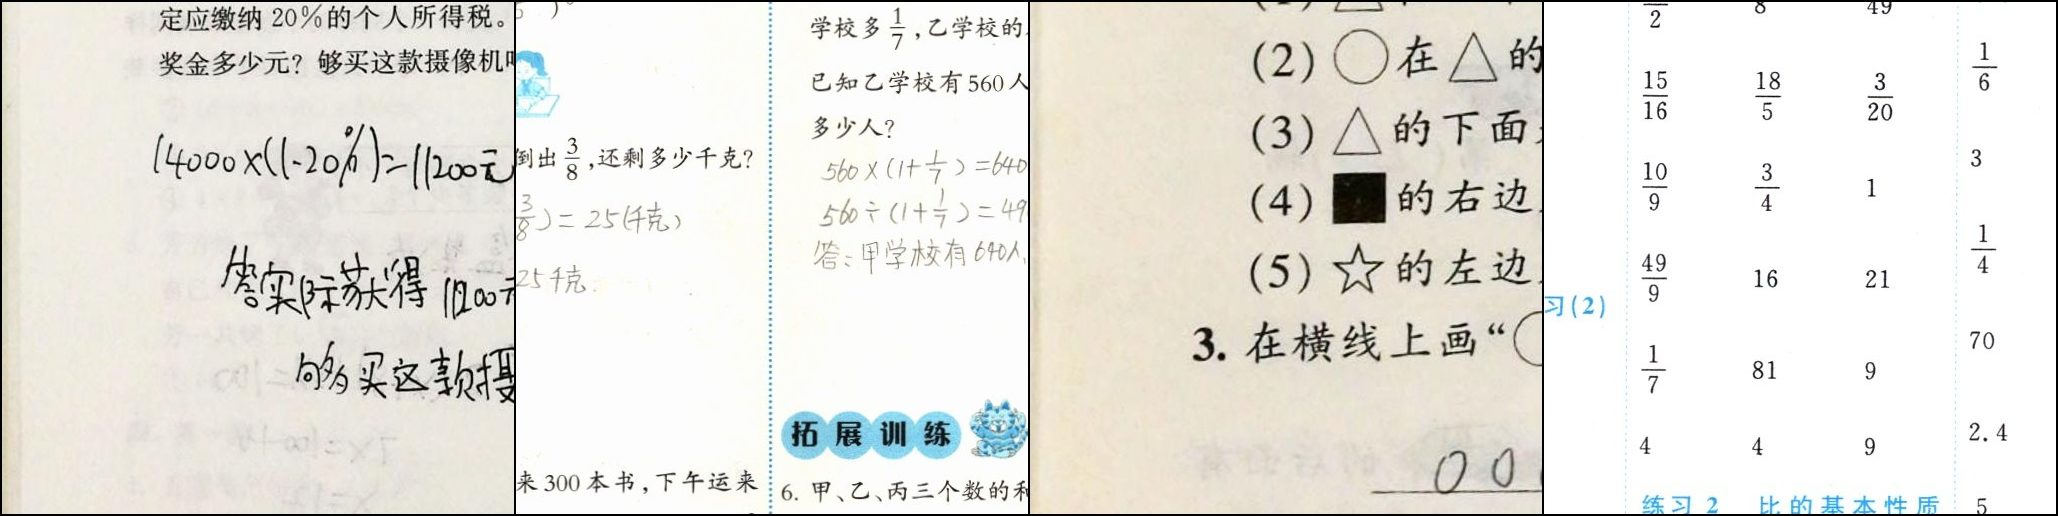 定应缴纳20%的个人所得税。
奖金多少元？够买这款摄像机
14000×(1-20%)=11200元
答实际获得11200元
够买这款摄
倒出3/8，还剩多少千克？
3/8)=25(千克)
25千克.
来300本书，下午运来
学校多1/7，乙学校的
已知乙学校有560人
多少人？
560×(1+1/7)=640
560÷(1+1/7)=49
答：甲学校有640人
拓展训练
6. 甲、乙、丙三个数的和
(2) ○在△的
(3) △的下面
(4) ■的右边
(5) ☆的左边
3. 在横线上画“○
00
2 8 49
1/6
15/16 18/5 3/20
3
10/9 3/4 1
1/4
49/9 16 21
习(2)
70
1/7 81 9
2.4
4 4 9
练习2 比的基本性质
5